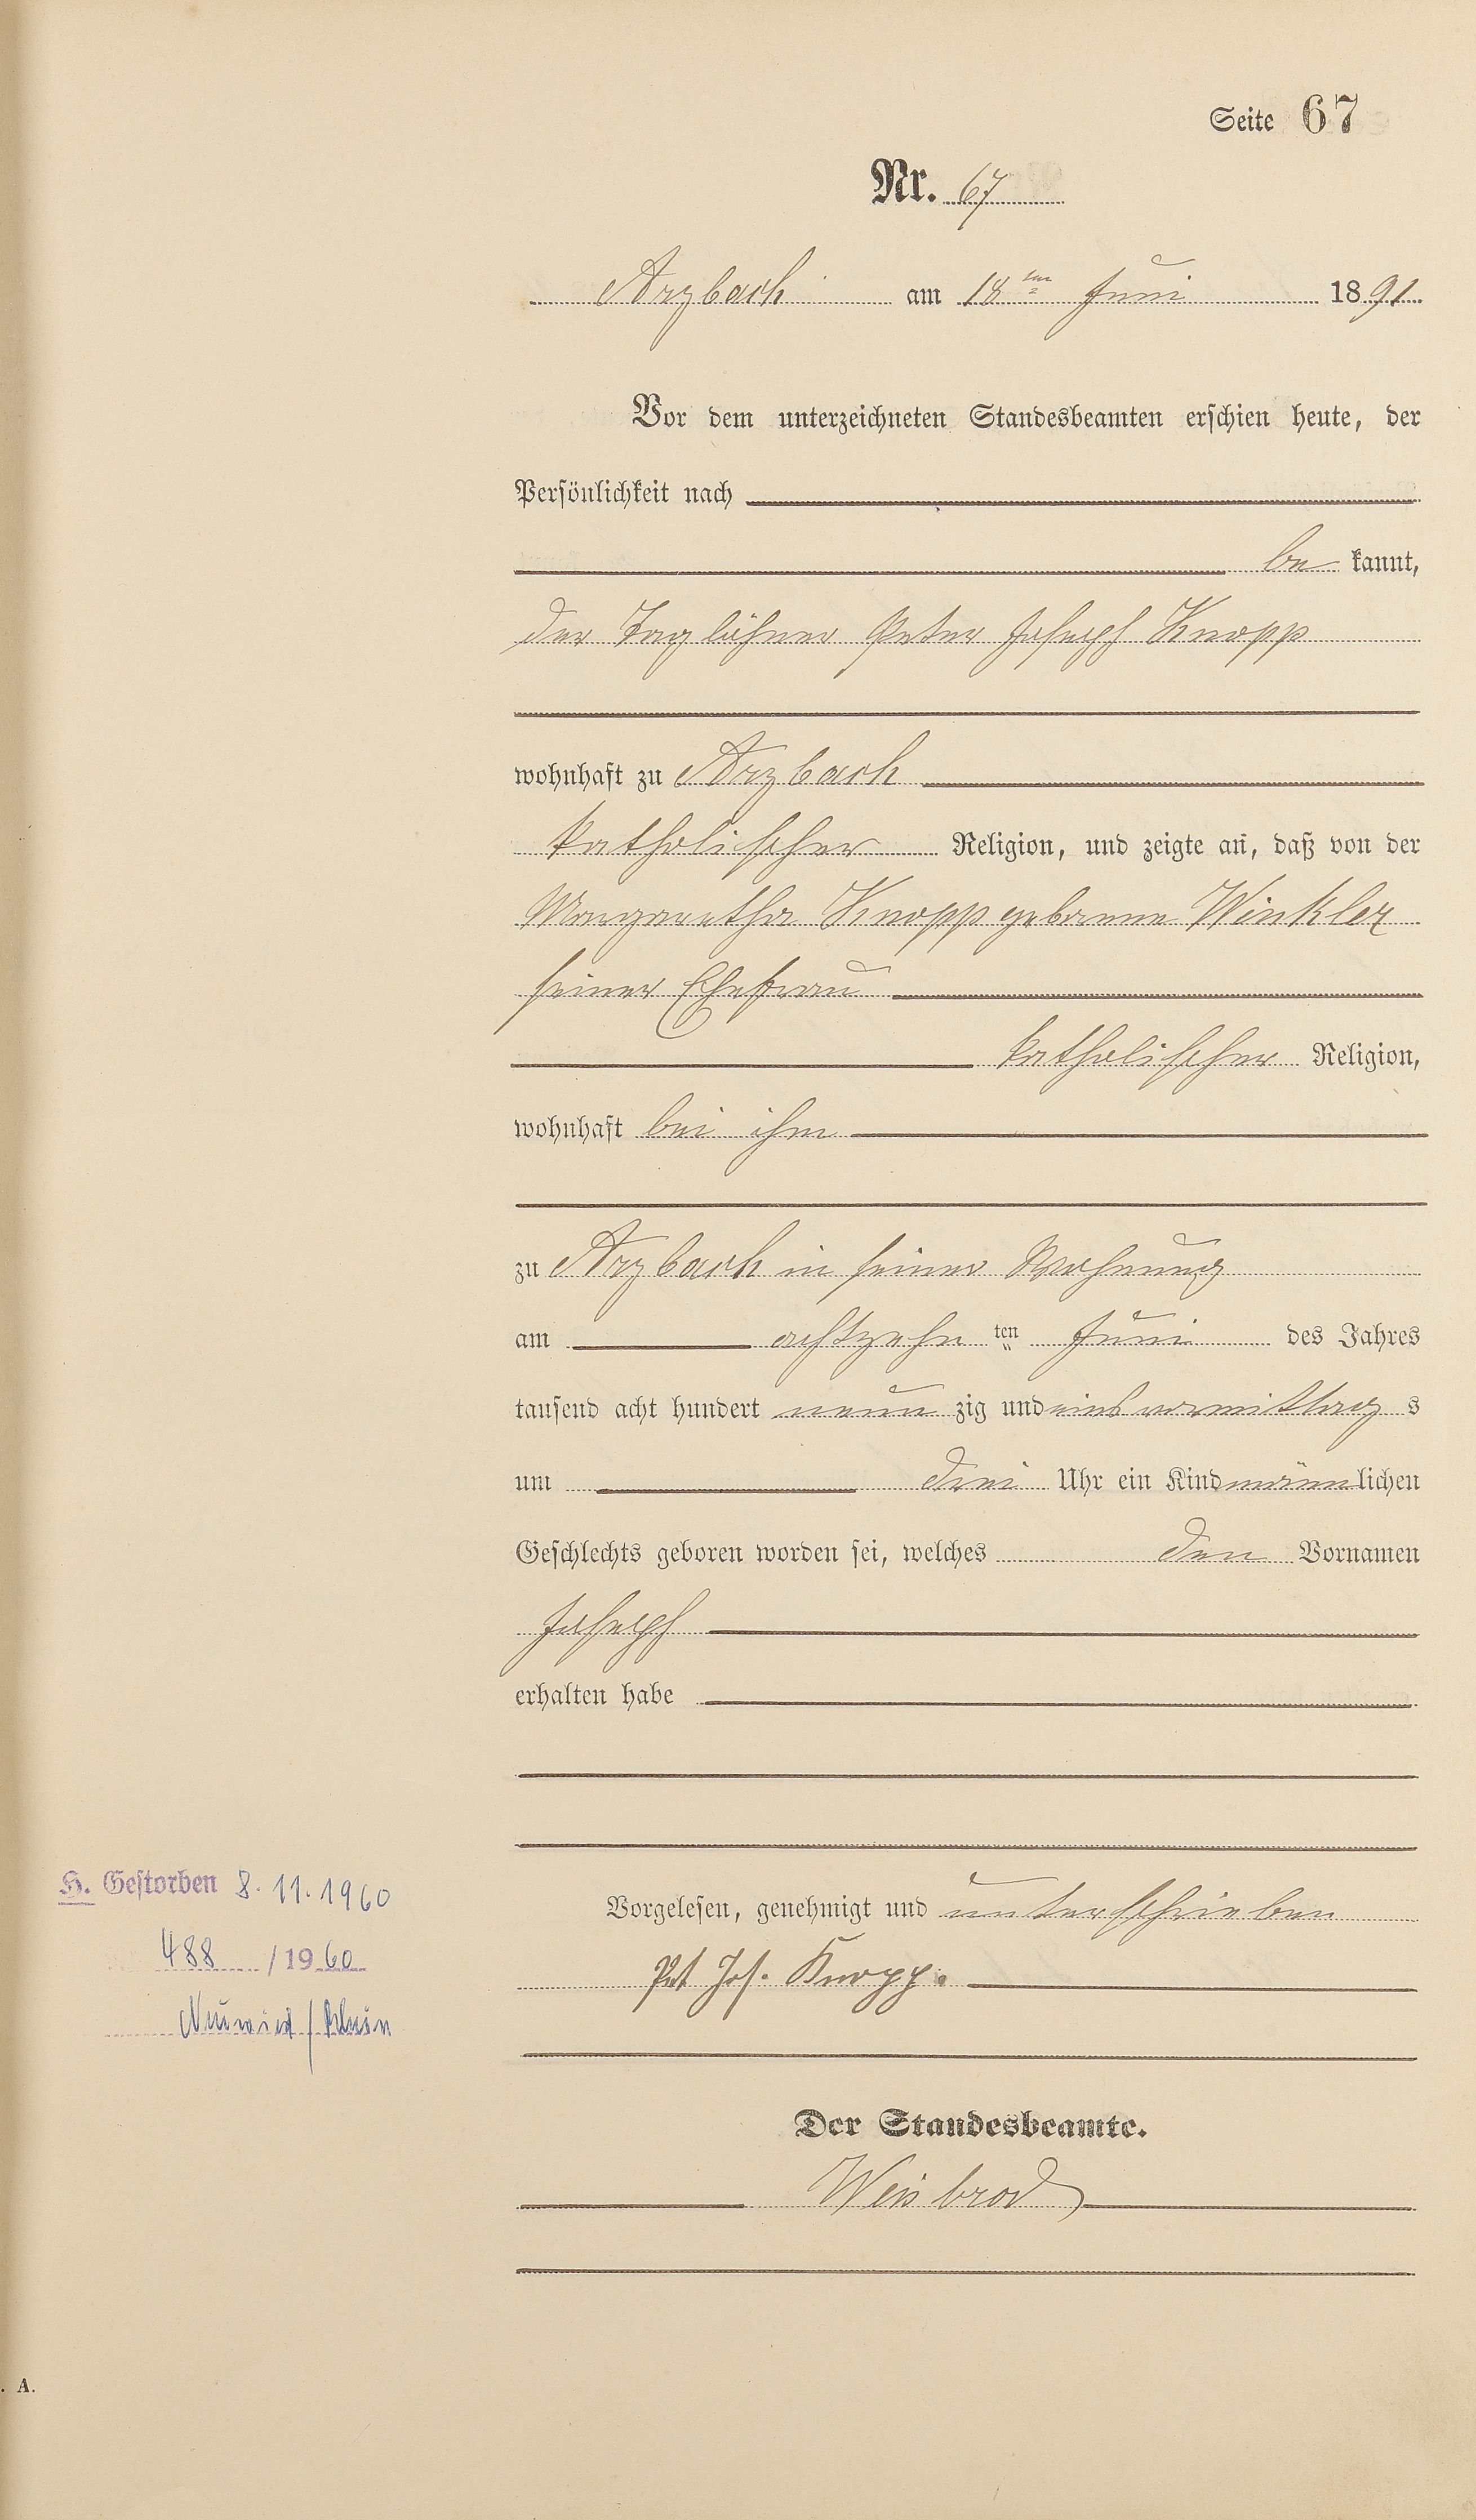 Seite 67
Nr. 67
Arzbach am 18ten Juni 1891
Vor dem unterzeichneten Standesbeamten erschien heute, der
Persönlichkeit nach
be kannt,
der Taglöhner Peter Joseph Knopp
wohnhaft zu Arzbach
katholischer Religion, und zeigte an, daß von der
Margaretha Knopp geborene Winkler
seiner Ehefrau
katholischer Religion,
wohnhaft bei ihm
zu Arzbach in seiner Wohnung
am achtzehn ten Juni des Jahres
tausend acht hundert neun zig und eins vormittag s
um drei Uhr ein Kind männlichen
Geschlechts geboren worden sei, welches den Vornamen
Joseph
erhalten habe
Vorgelesen, genehmigt und unterschrieben
Pet Jos. Knopp.
Der Standesbeamte.
Weisbrod
H. Gestorben 8.11.1960
488 /1960
Neuwied/Rhein
. A.